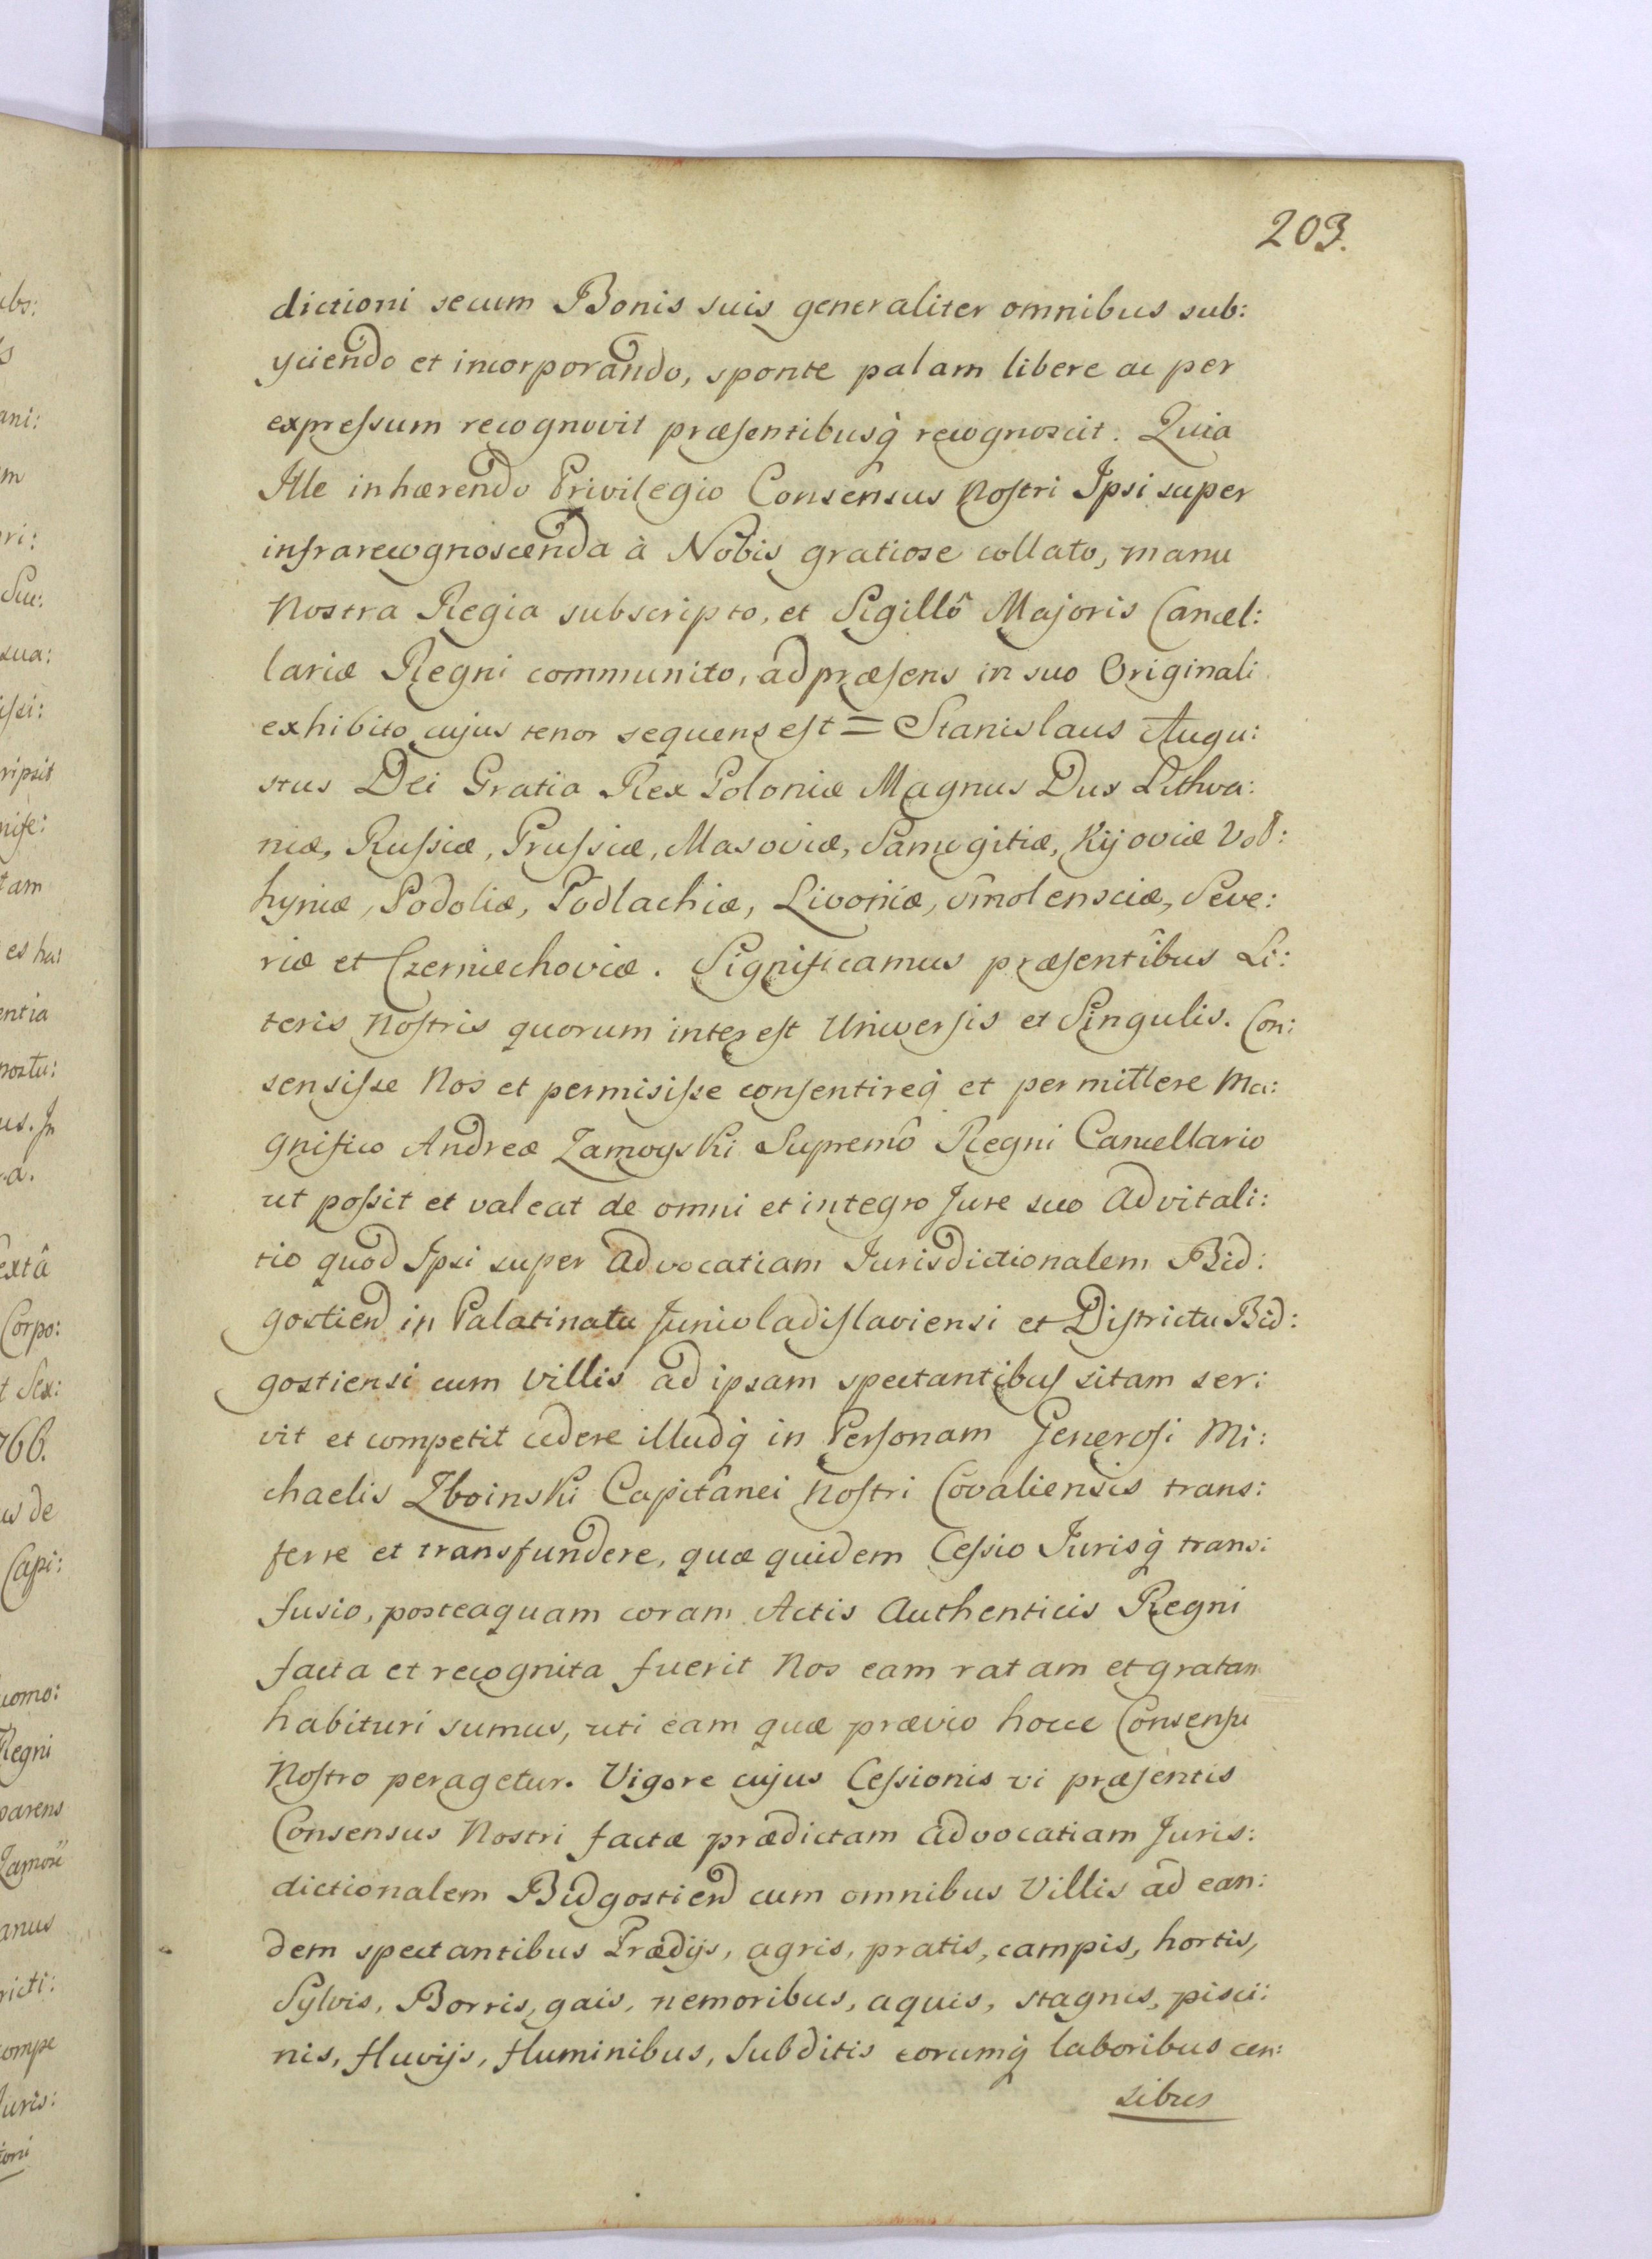 203.
dictioni secum Bonis suis generaliter omnibus sub:
yciendo et incorporando, sponte palam libere ac per
expreſsum recognovit præſentibusq́ recognoscit. Quia
Ille inhærendo Privilegio Consensus Noſtri Ipsi super
infrarecognoscenda à Nobis gratiose collato, manu
Nostra Regia subscripto, et Sigillô Majoris Cancel:
lariæ Regni communito, ad præſens in suo Originali
exhibito cujus tenor sequens eſt = Stanislaus Augu:
stus Dei Gratia Rex Poloniæ Magnus Dux Lithva:
niæ, Ruſsiæ, Pruſsiæ, Masoviæ, Samogitiæ, Kijoviæ Vol:
hyniæ, Podoliæ, Podlachiæ, Livoniæ, Smolensciæ, Seve:
riæ et Czerniechoviæ. Significamus præſentibus Li:
teris Noſtris quorum intereſt Universis et Singulis. Con:
sensiſse Nos et permisiſse conſentireq́ et permittere Ma:
gnifico Andreæ Zamoyski Supremô Regni Cancellario
ut poſsit et valeat de omni et integro Jure suo advitali:
tio quod Ipsi super advocatiam Jurisdictionalem Bid:
gostien in Palatinatu Junivladiſlaviensi et Diſtrictu Bid:
gostiensi cum Villis ad ipsam spectantibuſ sitam ser:
vit et competit cedere illudq́ in Perſonam Generoſi Mi:
chaelis Zboinski Capitanei Noſtri Covaliensis trans:
ferre et transfundere, quæ quidem Ceſsio Jurisq́ trans:
fusio, posteaquam coram Actis Authenticis Regni
facta et recognita fuerit Nos eam ratam et gratam
habituri sumus, uti eam quæ prævio hocce Consenſu
Noſtro peragetur. Vigore cujus Ceſsionis vi præſentis
Consensus Nostri factæ prædictam advocatiam Juris:
dictionalem Bidgostien cum omnibus Villis ad ean:
dem spectantibus Prædijs, agris, pratis, campis, hortis,
Sylvis, Borris, gais, nemoribus, aquis, stagnis, pisci:
nis, fluvijs, fluminibus, Subditis eorumq́ laboribus cen:
sibus